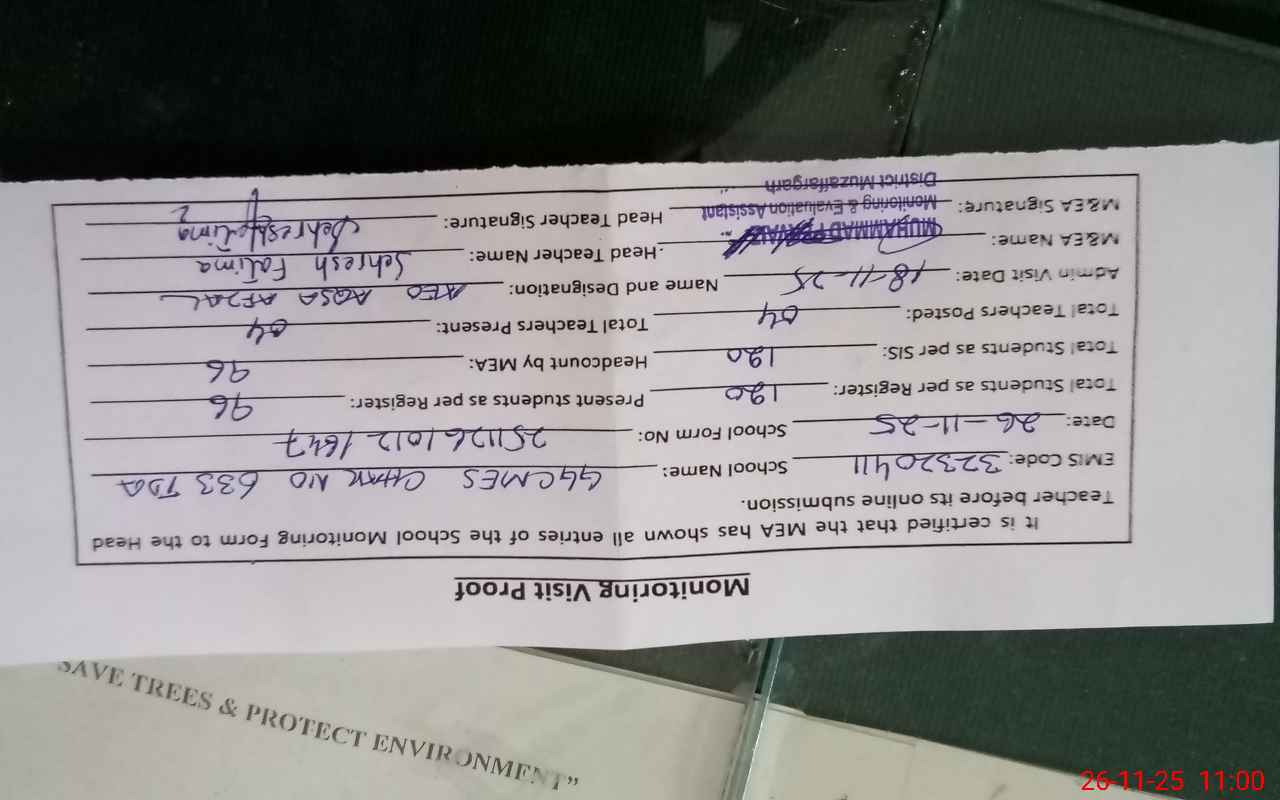 Monitoring Visit Proof
It is certified that the MEA has shown all entries of the School Monitoring Form to the Head
Teacher before its online submission.
EMIS Code: 32320411 School Name: GGCMES CHAK NO 633 TDA
Date: 26-11-25 School Form No: 251126 1012 1647
Total Students as per Register: 120 Present students as per Register: 96
Total Students as per SIS: 120 Headcount by MEA: 96
Total Teachers Posted: 04 Total Teachers Present: 04
Admin Visit Date: 18-11-25 Name and Designation: AEO AQSA AFZAL
M&EA Name: MUHAMMAD Head Teacher Name: Sehresh Fatima
M&EA Signature: Monitoring & Evaluation Assistant Head Teacher Signature: Sehresh Fatima
District Muzaffargarh
SAVE TREES & PROTECT ENVIRONMENT”
26-11-25 11:00